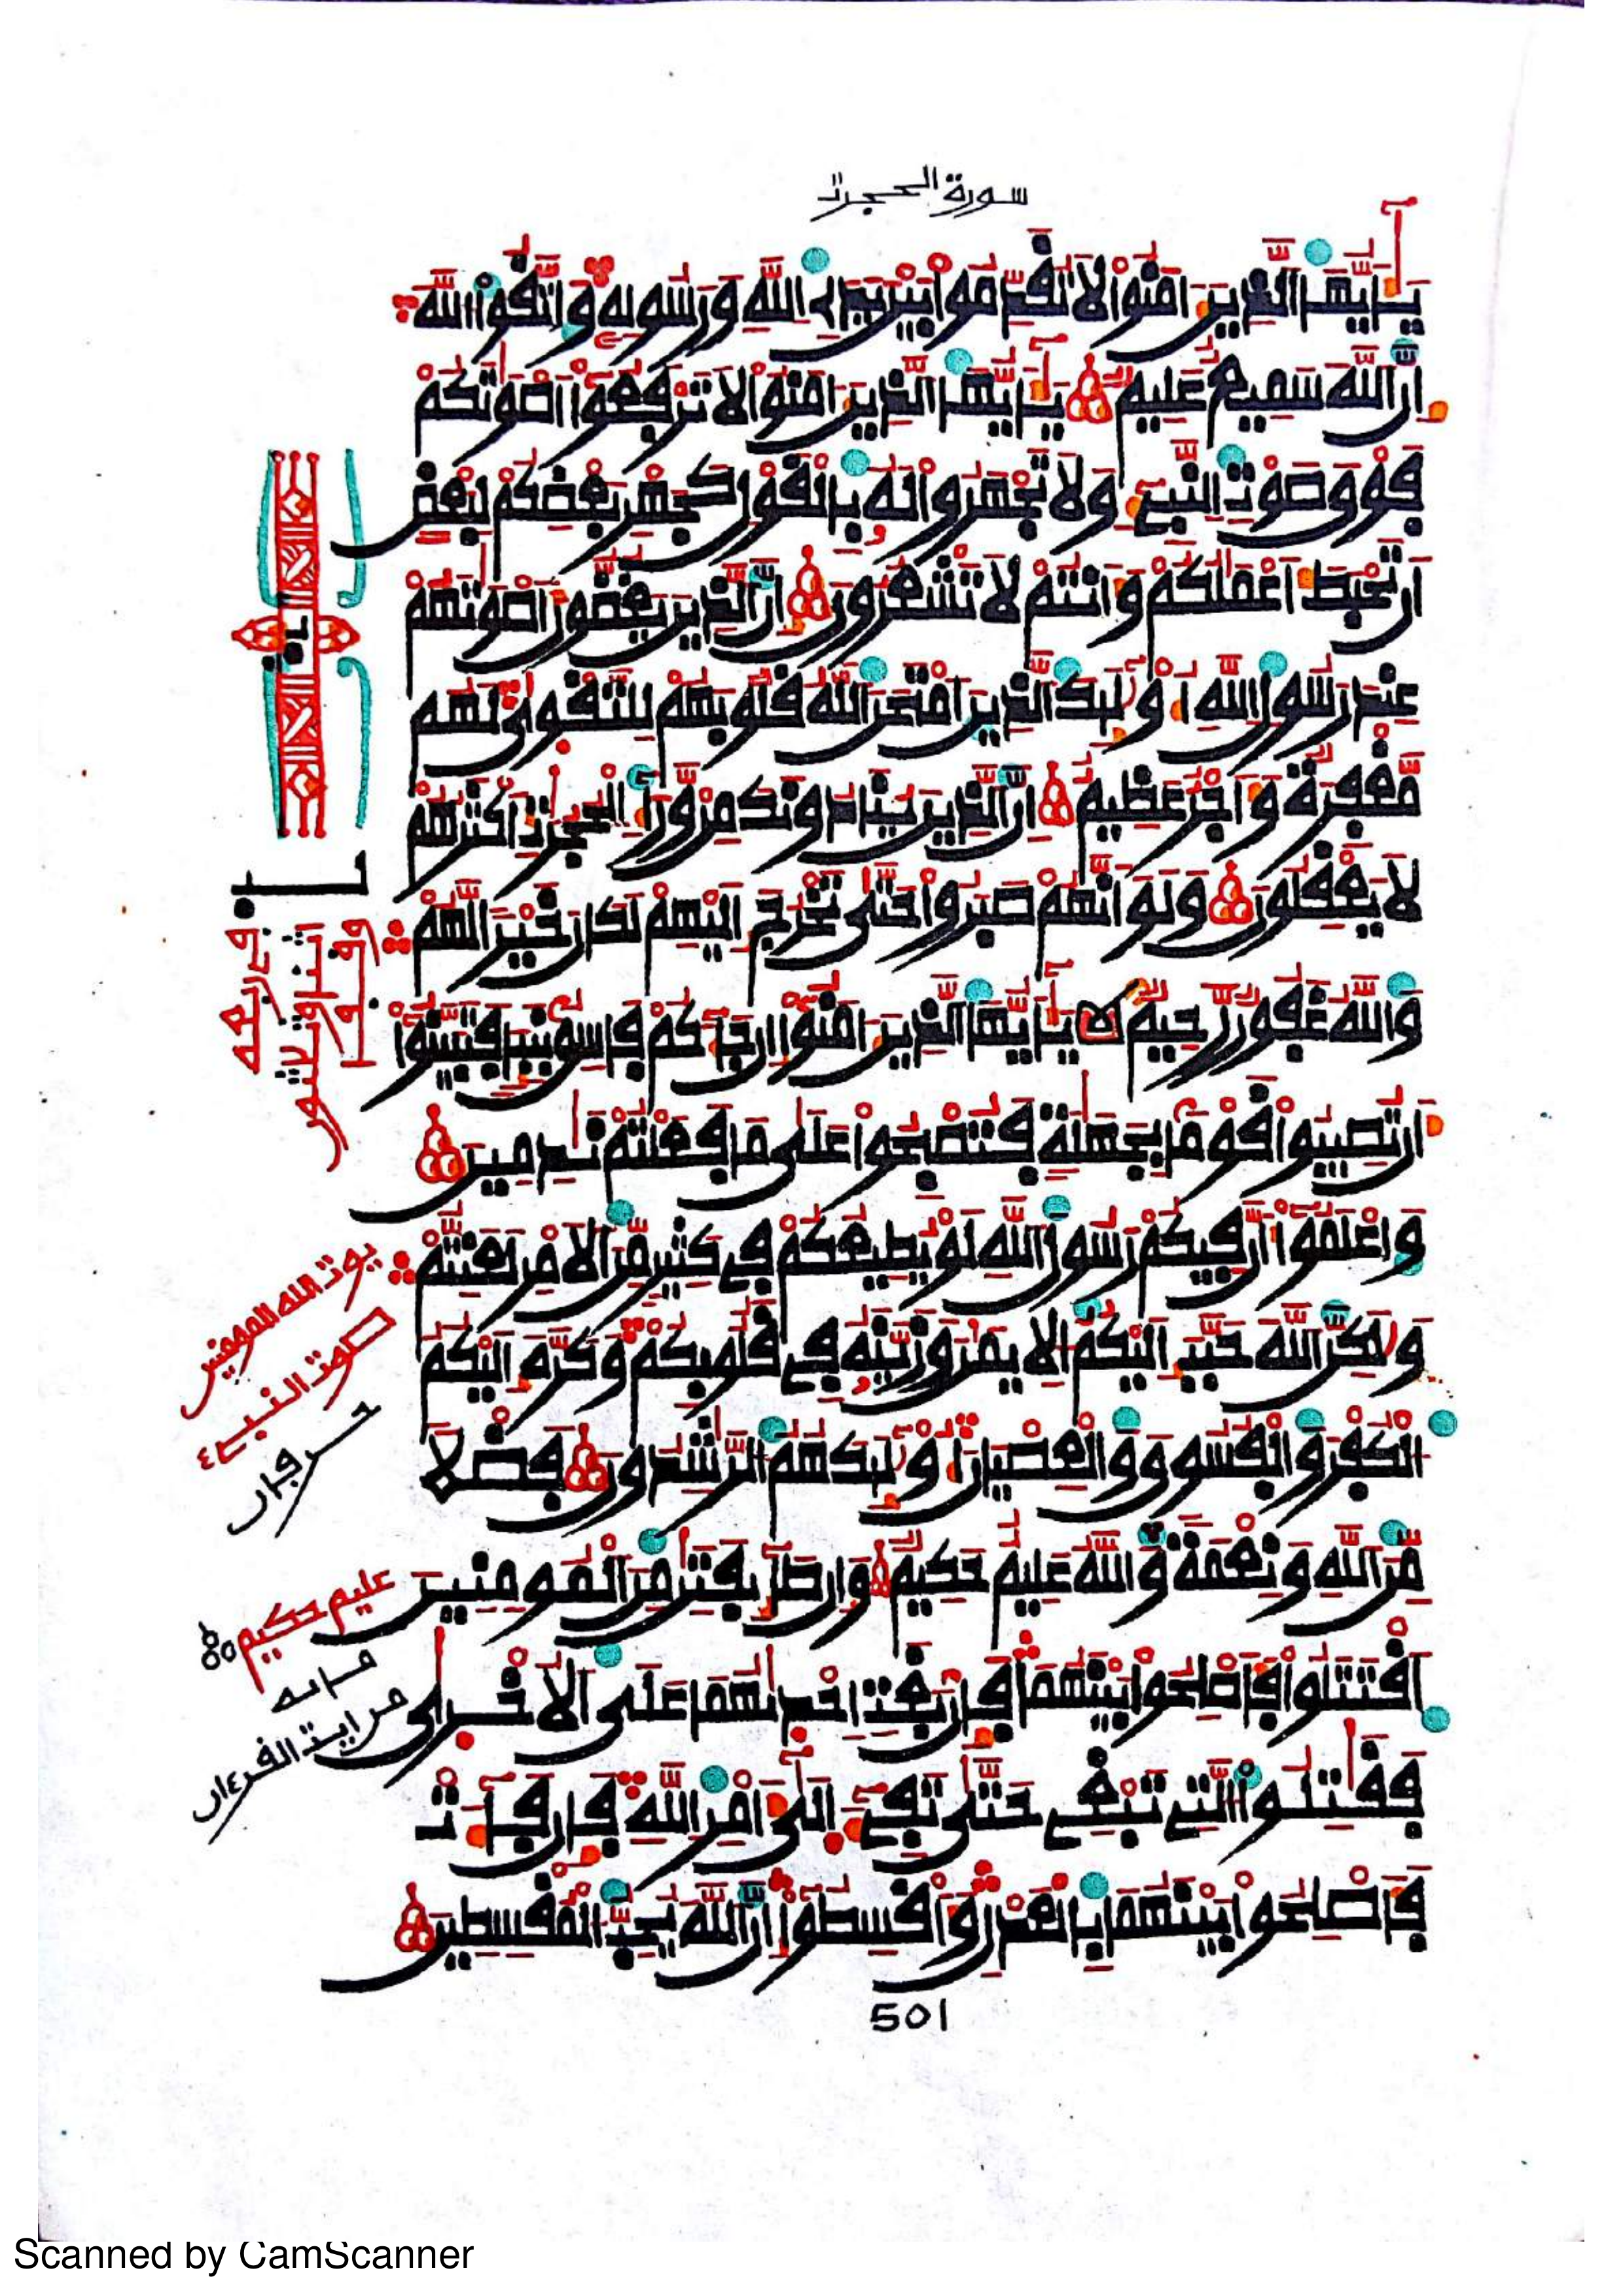 سورة الحجرت
يـأيها الذين ءامنوا لا تقدموا بين يدي الله ورسوله واتقوا الله
إن الله سميع عليم يـأيها الذين ءامنوا لا ترفعوا أصوتكم
فوق صوت النبي ولا تجهروا له بالقول كجهر بعضكم لبعض
أن تحبط أعملكم وأنتم لا تشعرون إن الذين يغضون أصوتهم
عند رسول الله أولئك الذين امتحن الله قلوبهم للتقوى لهم
مغفرة وأجر عظيم إن الذين ينادونك من وراء الحجرت أكثرهم
لا يعقلون ولو أنهم صبروا حتى تخرج إليهم لكان خيرا لهم
والله غفور رحيم يـأيها الذين ءامنوا إن جاءكم فاسق بنبإ فتبينوا
أن تصيبوا قوما بجهلة فتصبحوا على ما فعلتم ندمين
واعلموا أن فيكم رسول الله لو يطيعكم في كثير من الأمر لعنتم
ولكن الله حبب إليكم الإيمن وزينه في قلوبكم وكره إليكم
الكفر والفسوق والعصيان أولئك هم الرشدون فضلا
من الله ونعمة والله عليم حكيم وإن طائفتن من المؤمنين
اقتتلوا فأصلحوا بينهما فإن بغت إحدىهما على الأخرى
فقتلوا التي تبغي حتى تفيء إلى أمر الله فإن فاءت
فأصلحوا بينهما بالعدل وأقسطوا إن الله يحب المقسطين
يوت الله المومنين
صوت النبي ٤
عليم حكيم
501
Scanned by CamScanner